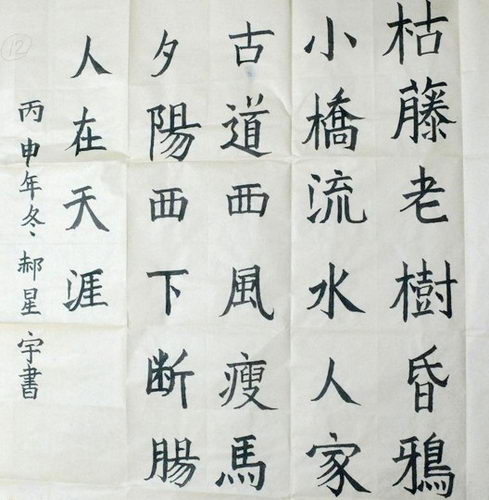 枯藤老樹昏鴉
小橋流水人家
古道西風瘦馬
夕陽西下断腸
人在天涯
丙申年冬郝星宇書
12